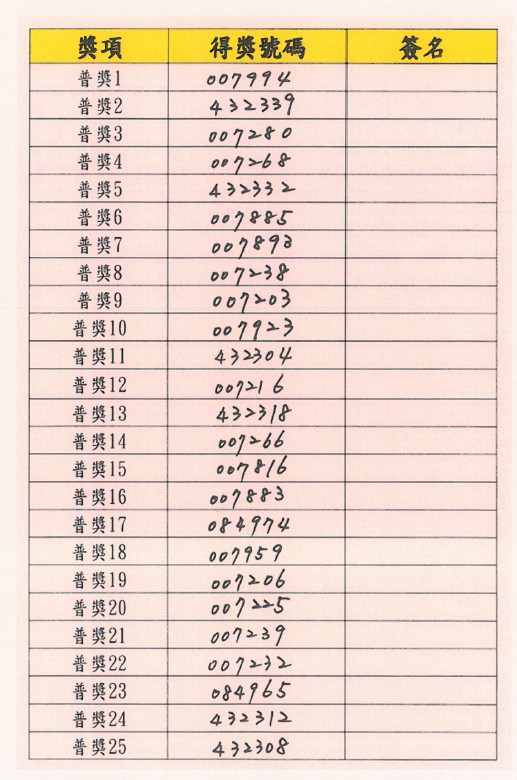 獎項 得獎號碼 簽名
普獎1 007994
普獎2 432339
普獎3 007280
普獎4 007268
普獎5 432332
普獎6 007885
普獎7 007893
普獎8 007238
普獎9 007203
普獎10 007923
普獎11 432304
普獎12 007216
普獎13 432318
普獎14 007266
普獎15 007816
普獎16 007883
普獎17 084974
普獎18 007959
普獎19 007206
普獎20 007225
普獎21 007239
普獎22 007232
普獎23 084965
普獎24 432312
普獎25 432308